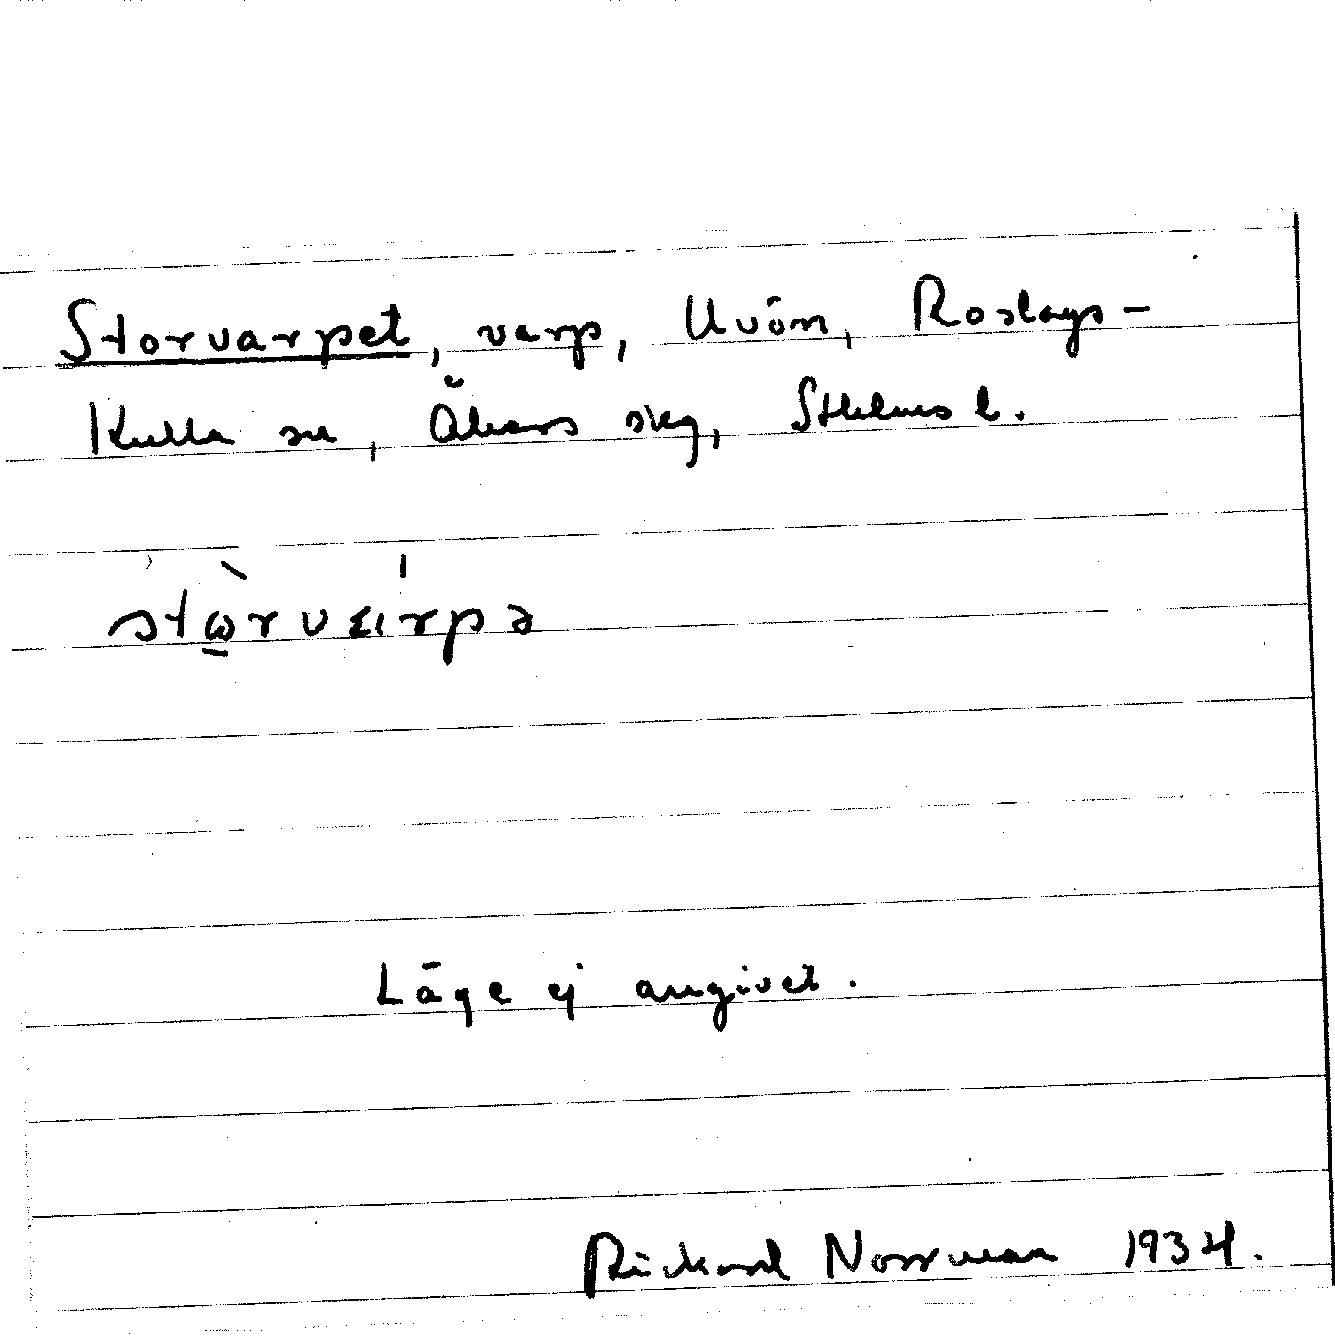 Storvarpet, varp, Uvön, Roslags-
Kulla sn, Åkers skg, Sthlms l.
stὼ̲rvaɹ́rpə
Läge ej angivet.
Rickard Norrman 1934.